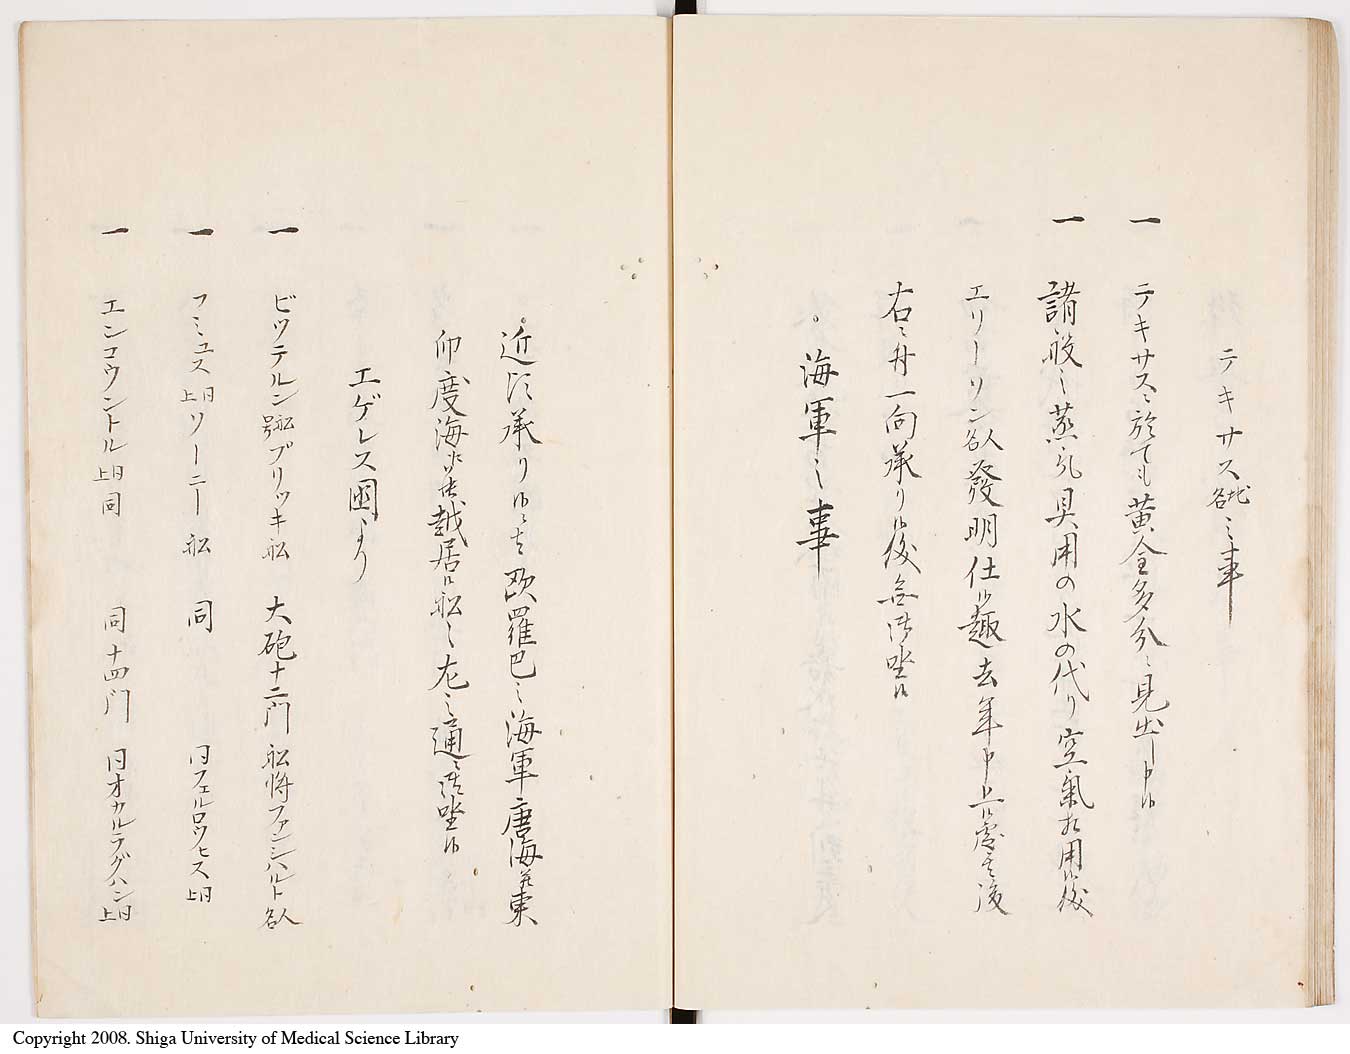 テキサス地名之事
一 テキサスニ於ても黄金多分ニ見出し申候
一 諸般之蒸気具用の水の代り空氣相用候後
エリーソン人名發明仕候趣去年申上候處其後
右之舟一向承り候後無御坐候
。海軍之事
。近頃承り候ニ者欧羅巴之海軍唐海并東
印度海江参越居候船々左之通ニ御坐候
エゲレス國より
一 ビツテルン船号ブリツキ船 大砲十二門 船将ファンシハルト人名
一 フミュス同上ソーニー船 同 同フェルロウヒス同上
一 エンコウントル同上同 同十四門 同オカルラグハン同上
Copyright 2008. Shiga University of Medical Science Library